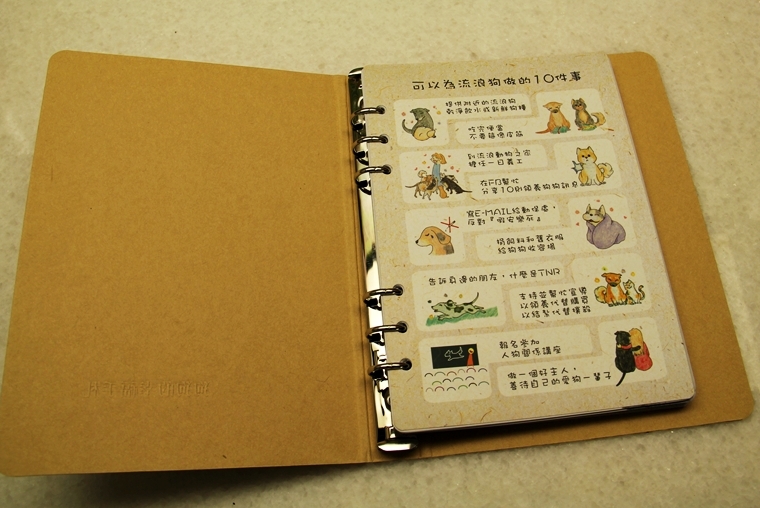 可以為流浪狗做的10件事
提供附近的流浪狗
乾淨飲水或新鮮狗糧
吃完便當
不要隨便皮筋
到流浪動物之家
擔任一日義工
在FB幫忙
分享10則領養狗狗訊息
寫E-MAIL給動保處,
反對『假安樂死』
捐飼料和舊衣服
給狗狗收容場
告訴身邊的朋友,什麼是TNR
支持並幫忙宣導
以領養代替購買
以結紮代替撲殺
報名參加
人狗關係講座
做一個好主人,
善待自己的愛狗一輩子